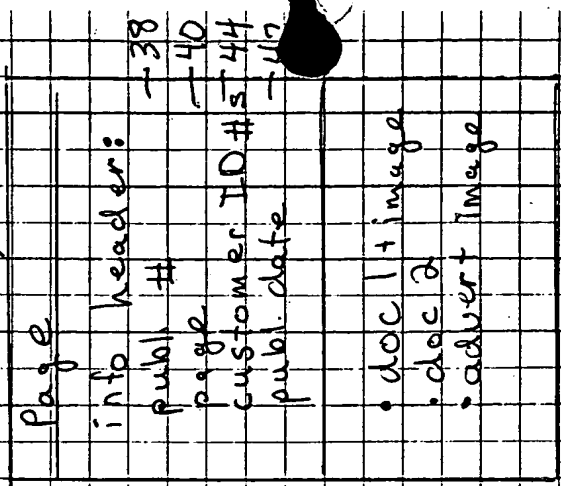 Page
info header:
publ. # — 38
page — 40
customer ID #s — 44
publ. date — 47
• doc 1 + image
• doc 2
• advert image